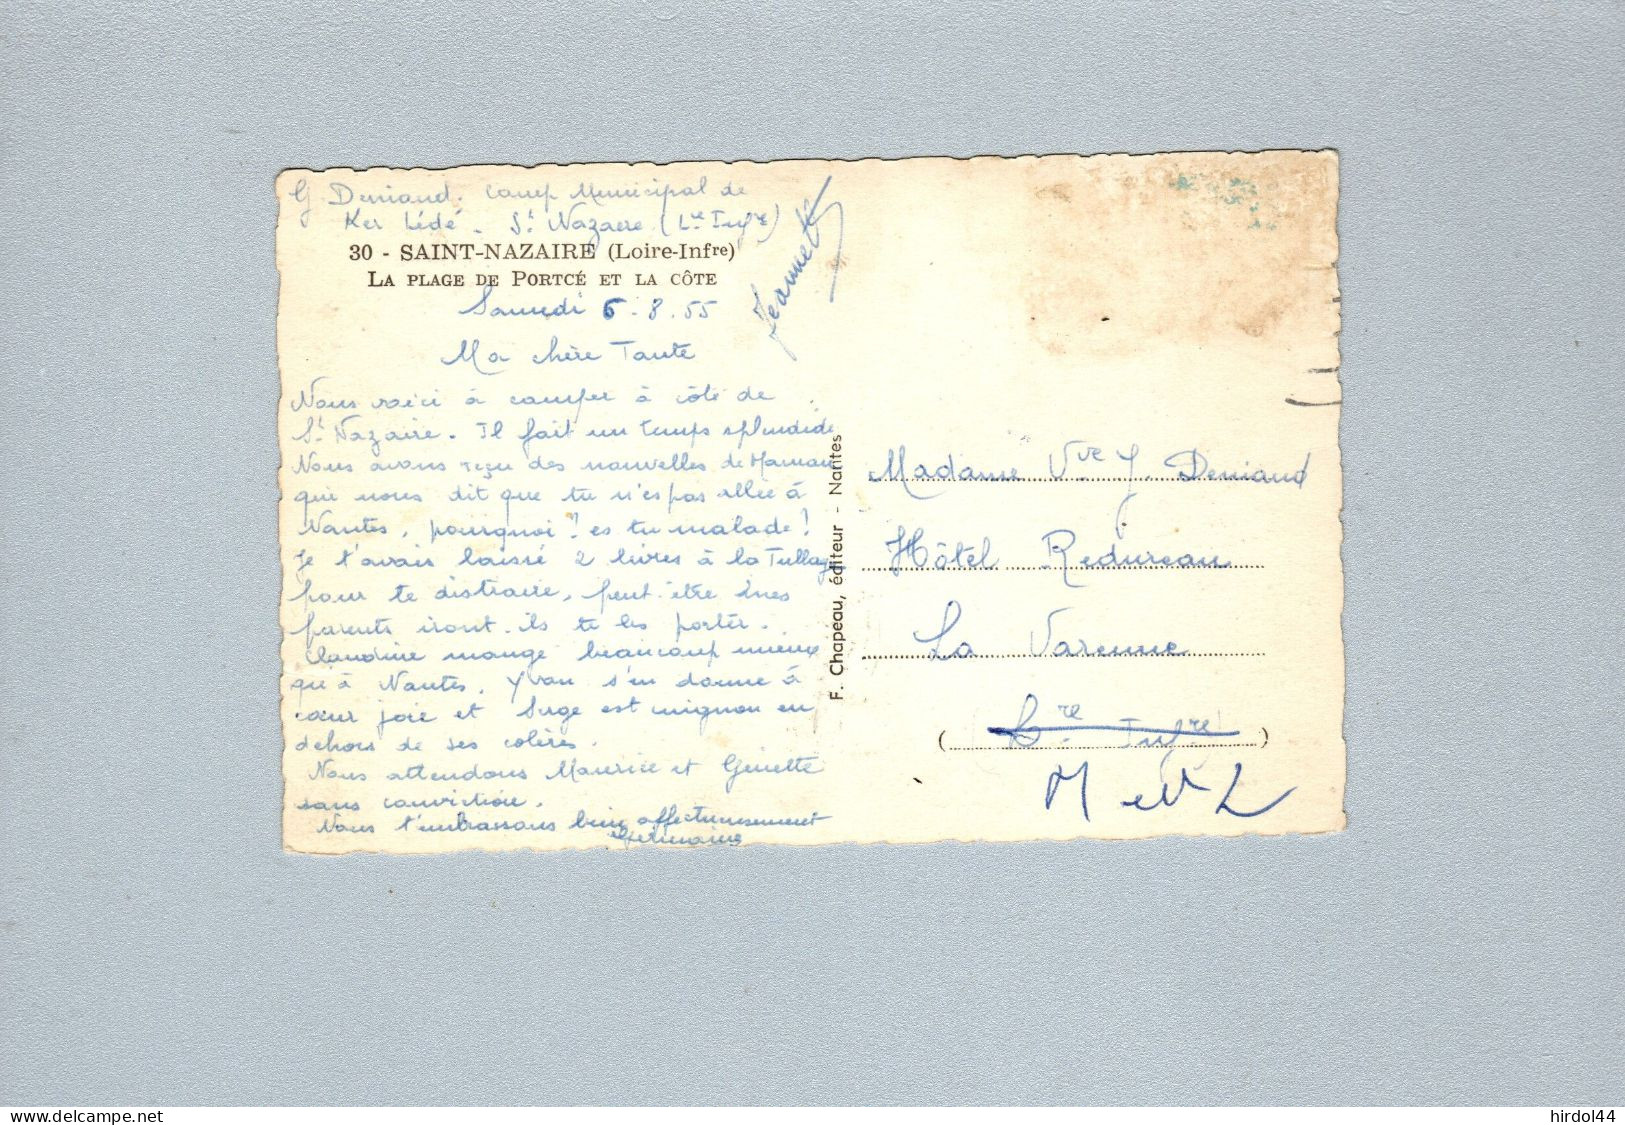 G Deniaud. Camp Municipal de
Ker Lédé - St Nazaire (Lre Infre)
30 - SAINT-NAZAIRE (Loire-Infre)
LA PLAGE DE PORTCÉ ET LA CÔTE
Samedi 6.8.55
Ma chère Tante
Nous voici à camper à côté de
St Nazaire. Il fait un temps splendide
Nous avons reçu des nouvelles de Maman
qui nous dit que tu n'es pas allée à
Nantes, pourquoi? es tu malade?
Je t'avais laissé 2 livres à la
pour te distraire, peut-être mes
parents iront-ils te les porter.
Claudine mange beaucoup mieux
qu'à Nantes, Yvan s'en donne à
cœur joie et Serge est mignon en
dehors de ses colères.
Nous attendons Maurice et Ginette
sans conviction.
Nous t'embrassons bien affectueusement
Germaine
Jeannette
F. Chapeau, éditeur - Nantes
Madame Vve J. Deniaud
Hôtel Redureau
La Varenne
(Lre Infre)
M et L
delcampe.net
hirdol44